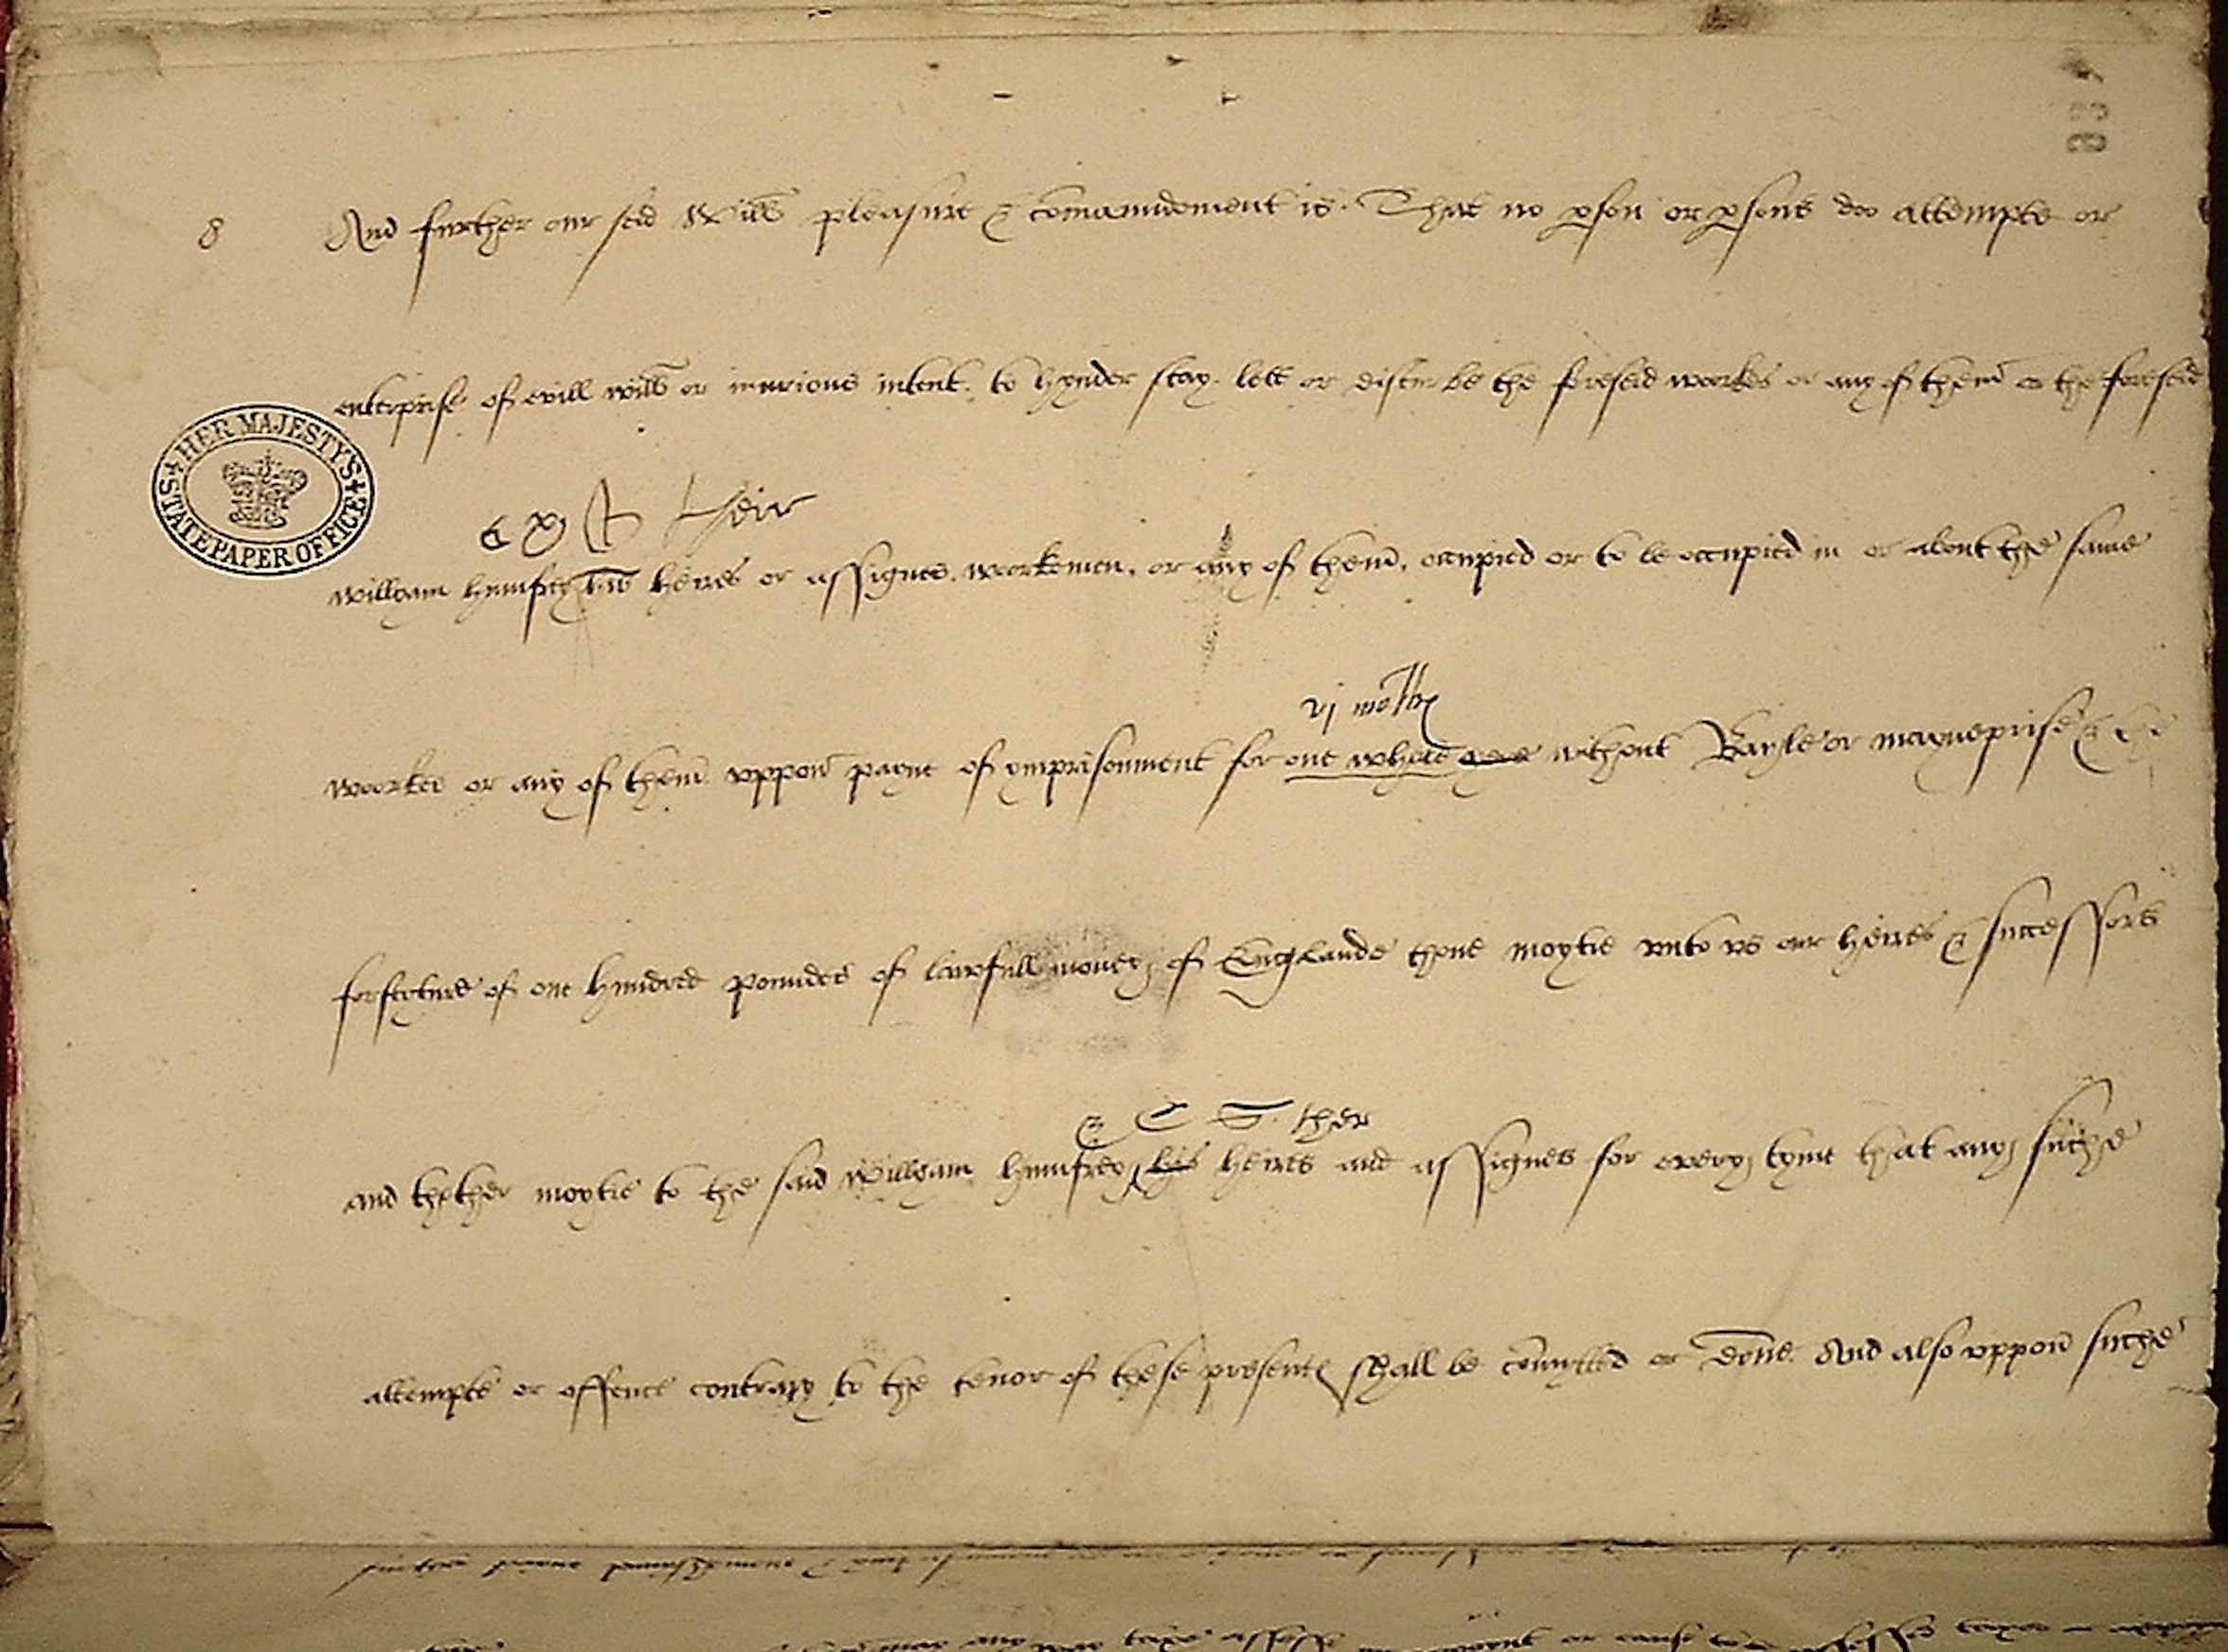 8 And further our seid Will pleasure & comaundement is. That no pson or psons doo attempte or
enterprise of evill will or iniurious intent. to hynder stay. lett or disturbe the foreseid workes or any of them or the foreseid
their
William humfrey heires or assignes. workemen. or any of them. occupied or to be occupied in or about the same
vj moth
workes or any of them uppon payne of ymprisonment for one whole yere without Bayle or mayneprise & the
forfeyture of one hundred poundes of lawfull money of Englande thone moytie unto us our heires & successors
& C S. ther
and thother moytie to the said William humfrey his heires and assignes for every tyme that any suche
attempte or offence contrary to the tenor of these presents shall be comytted or done. And also uppon suche
HER MAJESTY'S STATE PAPER OFFICE